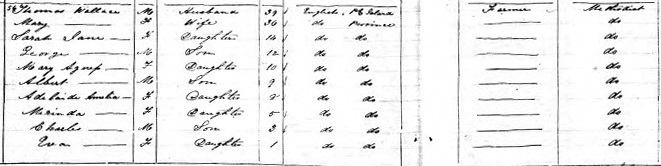 Thomas Wallace M Husband 39 English P.E. Island Farmer Methodist
Mary F Wife 36 do Province do
Sarah Jane F Daughter 14 do do do
George M Son 12 do do do
Mary Agness F Daughter 10 do do do
Albert M Son 9 do do do
Adelaide Amelia F Daughter do do do
Marinda F Daughter 5 do do do
Charles M Son 3 do do do
F Daughter 1 do do do